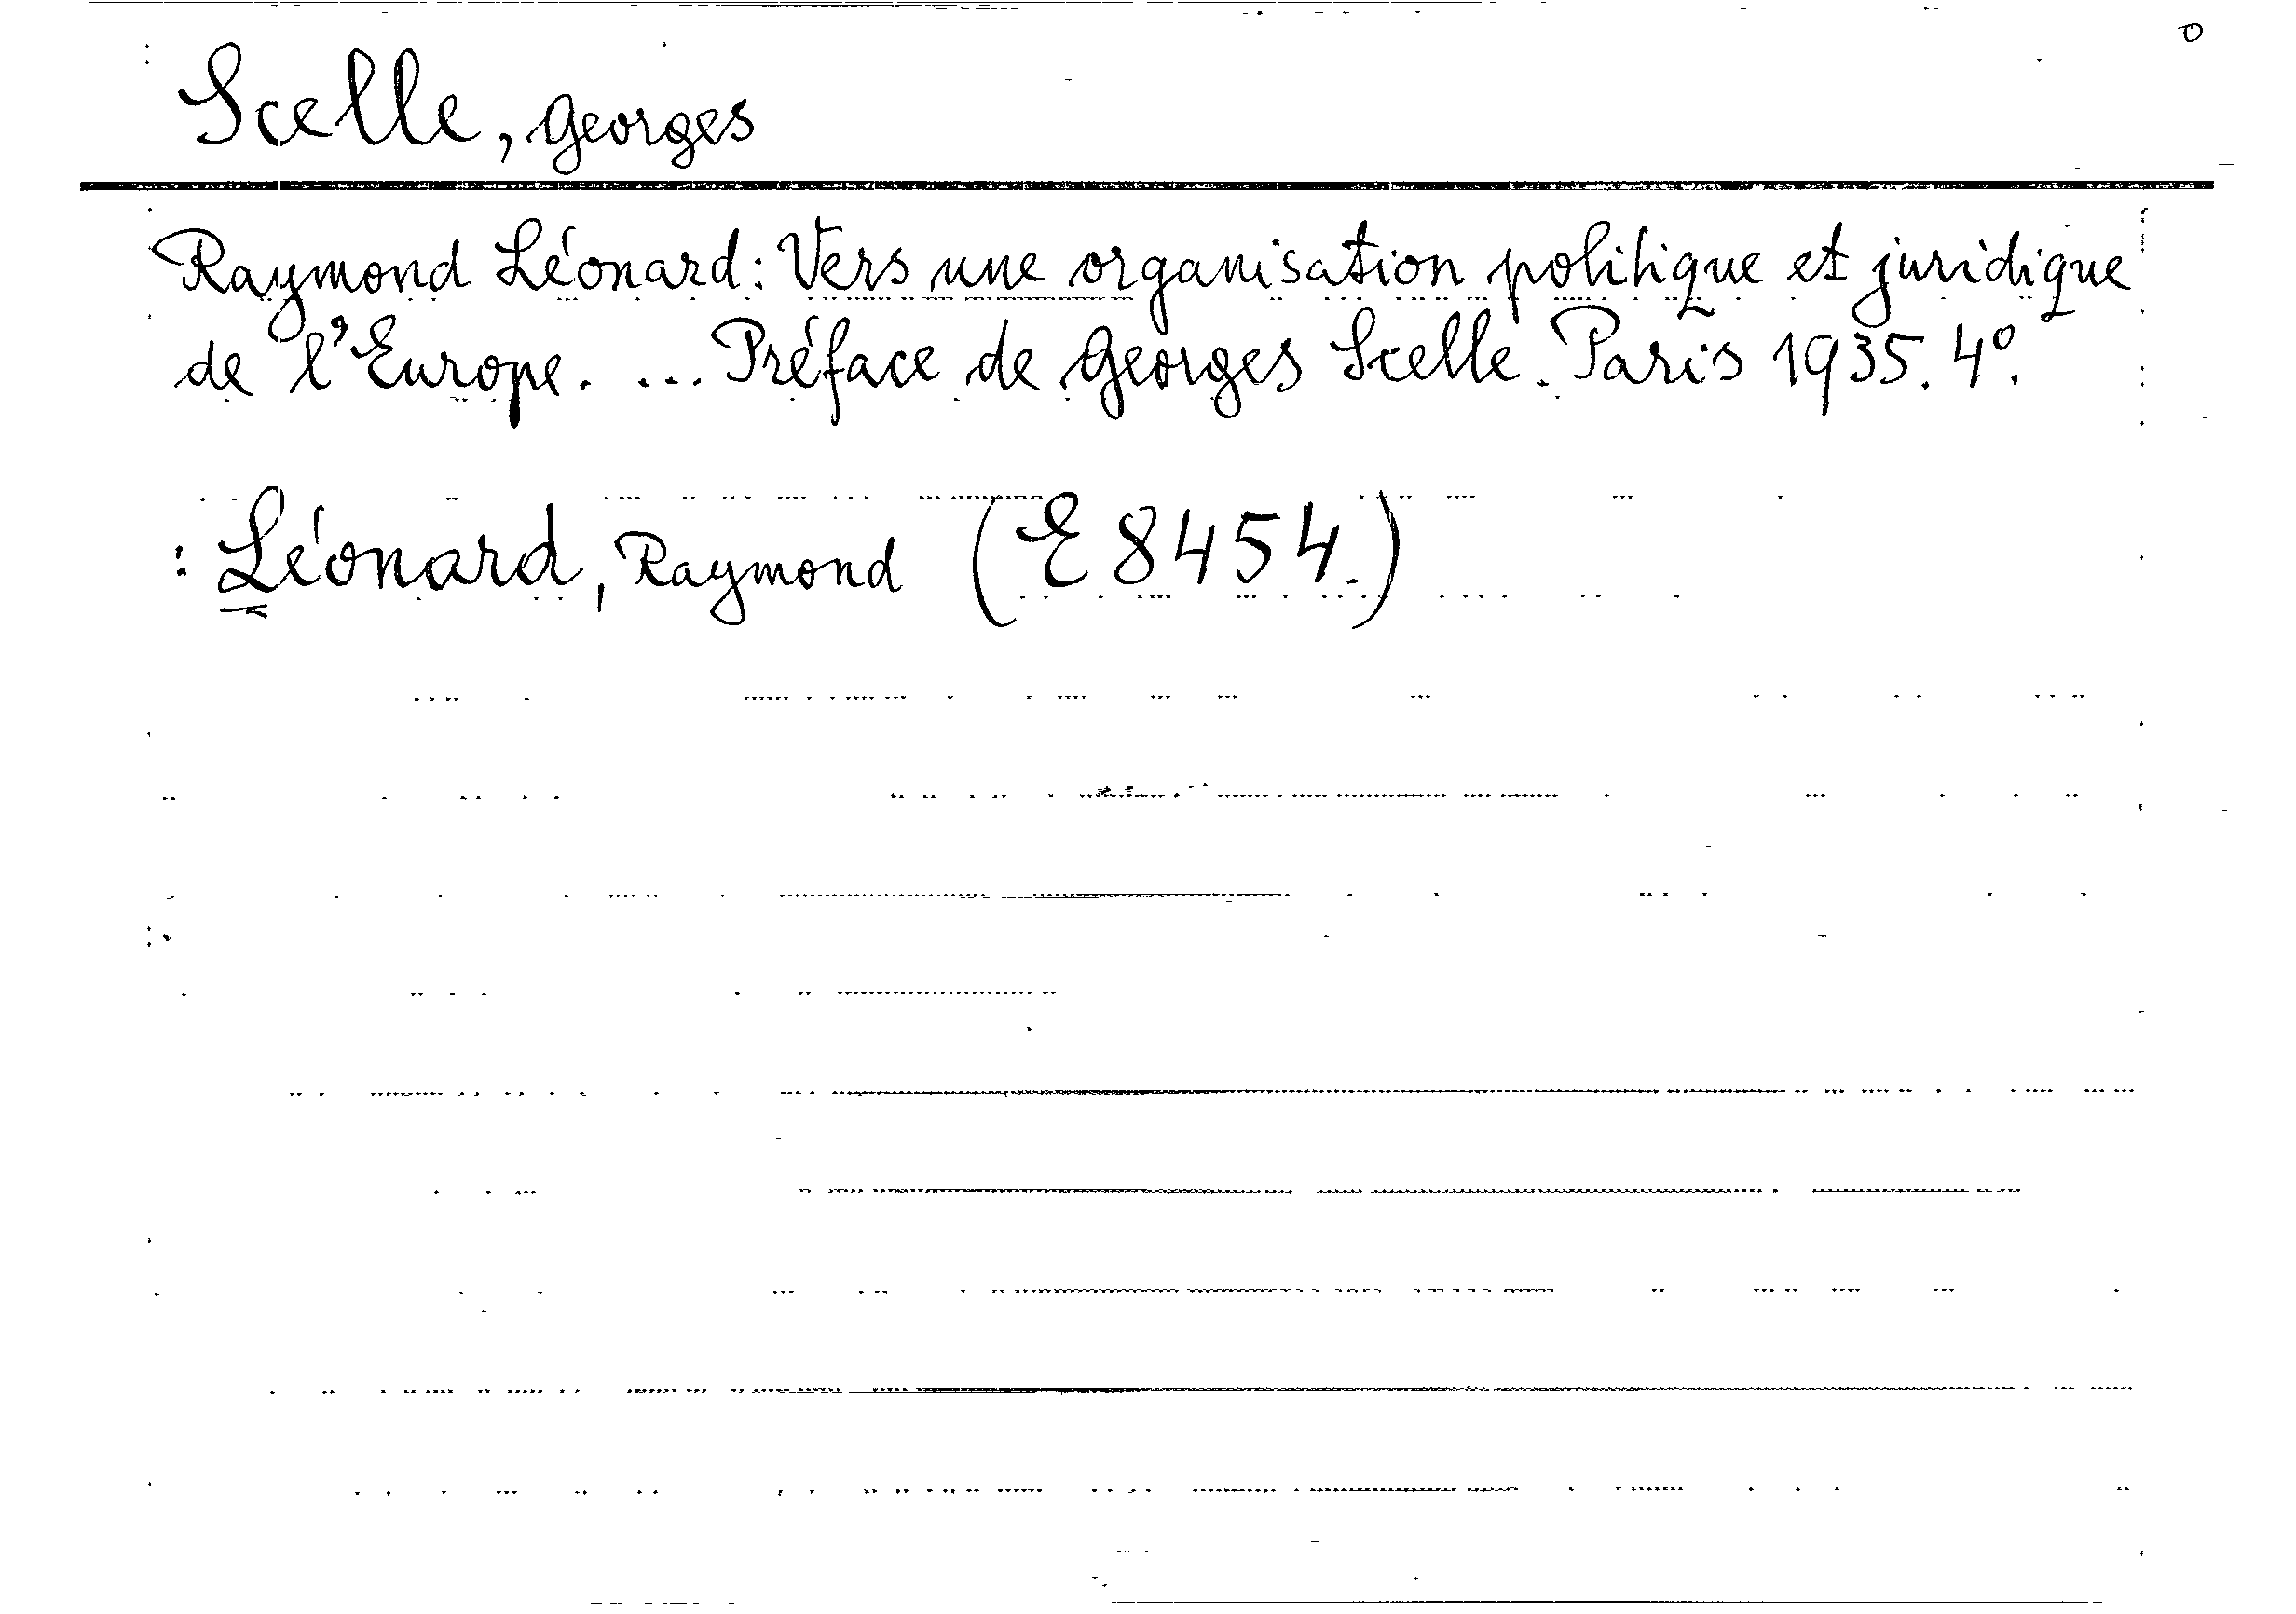 Scelle, Georges
Raymond Léonard: Vers une organisation politique et juridique
de l'Europe. ... Préface de Georges Scelle. Paris 1935. 4°.
: Léonard, Raymond (E 8454.)